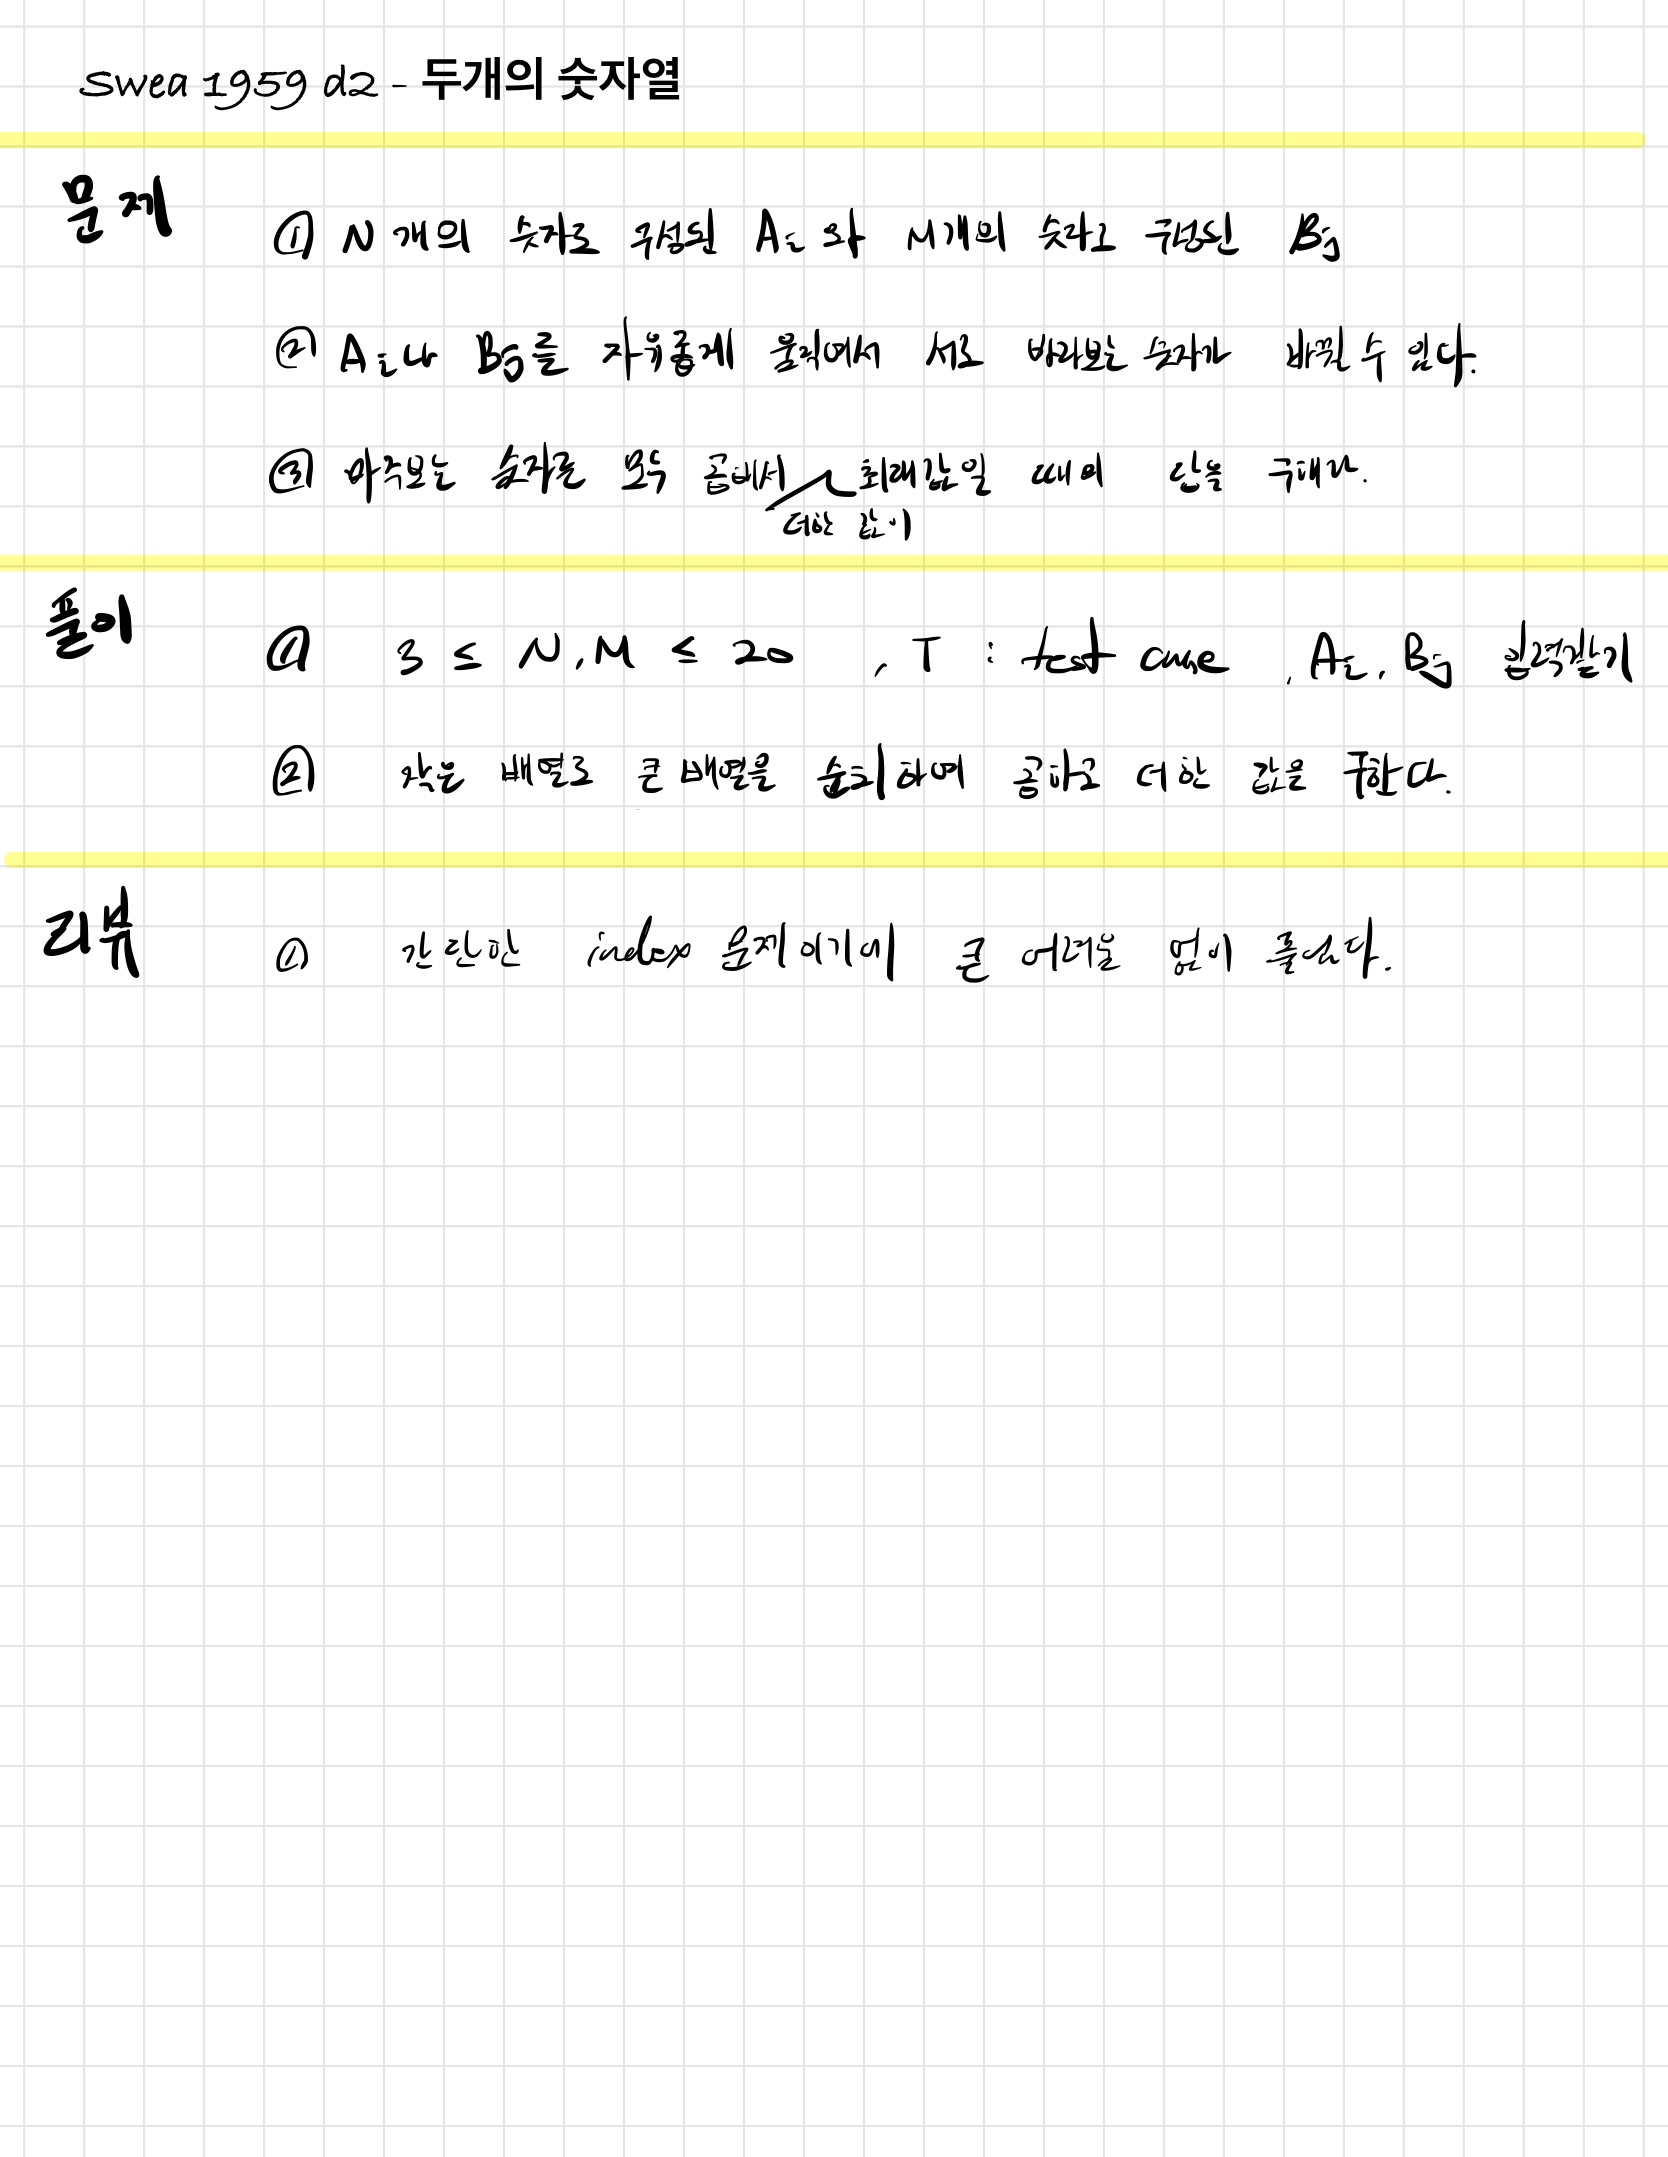 swea 1959 d2 - 두개의 숫자열
문제
① N개의 숫자로 구성된 Ai와 M개의 숫자로 구성된 Bj
② Ai나 Bj를 자유롭게 움직여서 서로 바라보는 숫자가 바뀔 수 있다.
③ 마주보는 숫자를 모두 곱해서 최대값일 때의 답을 구해라.
더한 값이
풀이
① 3 ≤ N, M ≤ 20 , T : test case , Ai, Bj 입력받기
② 작은 배열로 큰 배열을 순회하여 곱하고 더한 값을 구한다.
리뷰
① 간단한 index 문제이기에 큰 어려움 없이 풀었다.